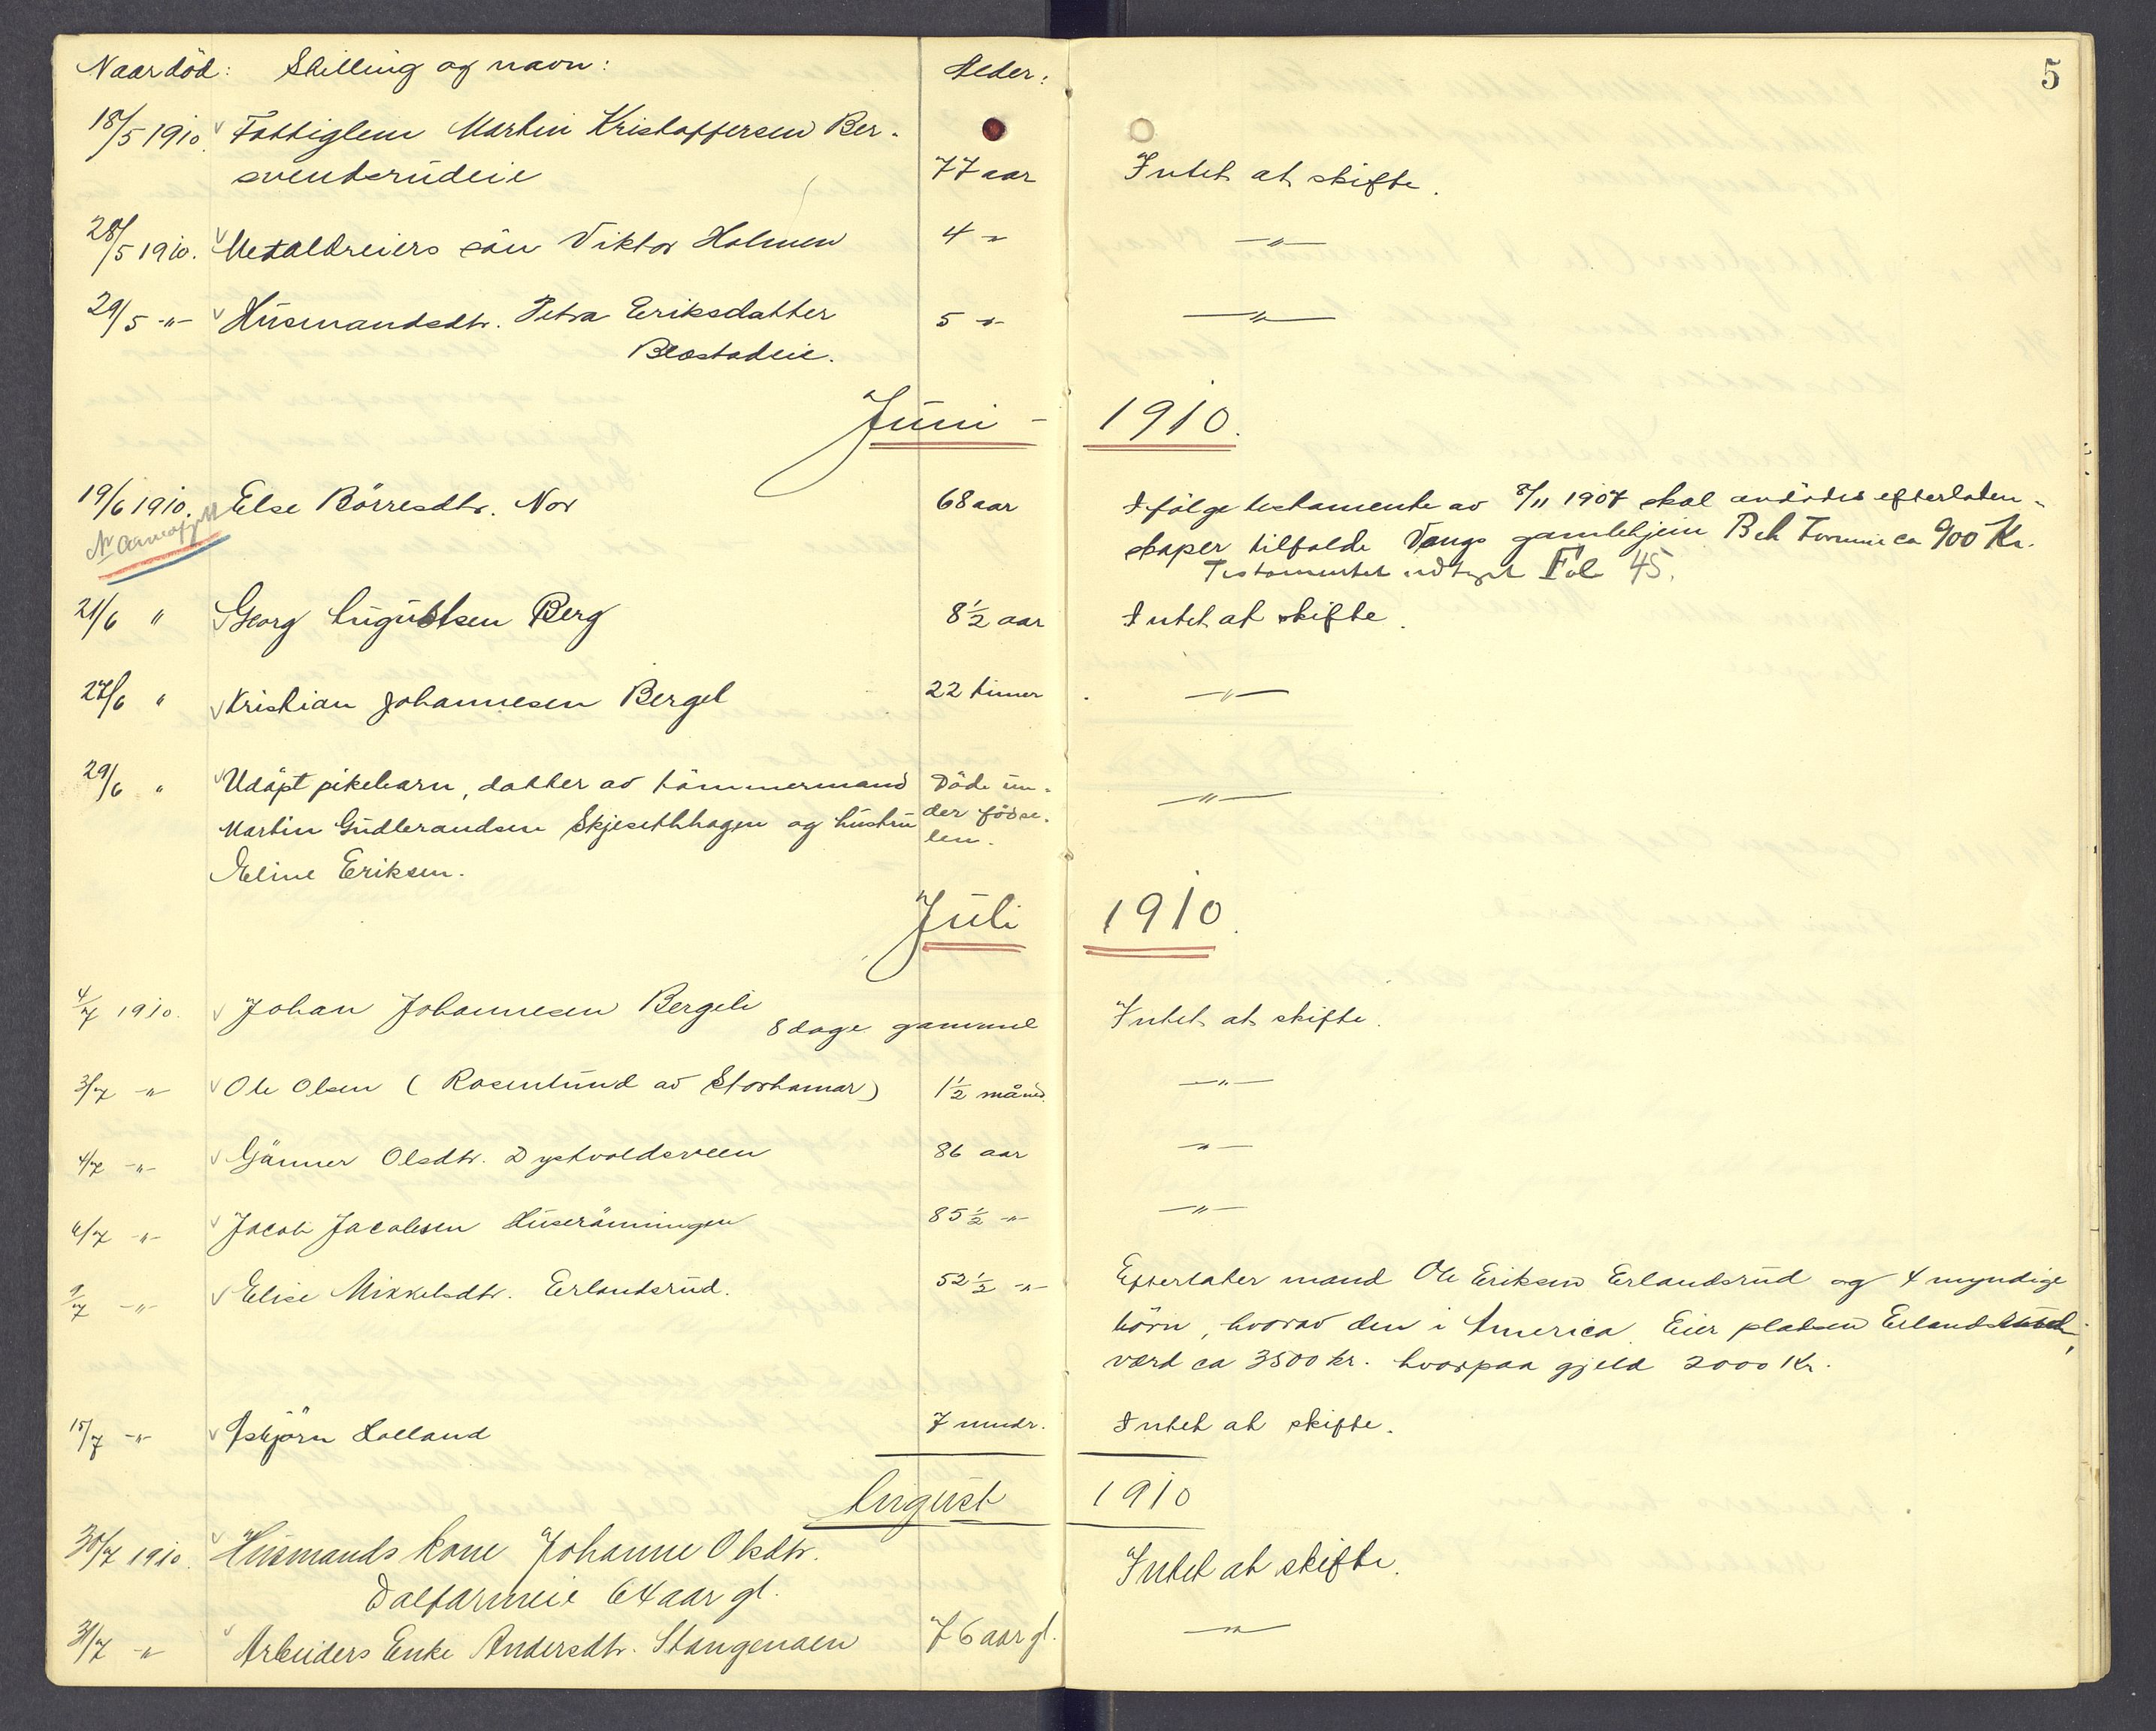 5
Naar död: Stilling og navn: Alder:
18/5 1910. Fattiglem Martin Kristoffersen Ber-
sventsrudeie 77 aar Intet at skifte.
28/5 1910. Metaldreiers sön Viktor Holmen 4 -"- -"-
29/5 -"- Husmandsdtr. Petra Eriksdatter 5 -"- -"-
Blæstadeie.
Juni - 1910.
19/6 1910. Else Börresdtr. Nor 68 aar Ifölge testamente av 8/11 1907 skal avdödes efterladen-
skaper tilfalde Vangs gamlehjem ca 900 Kr.
Testamentet Fol 45.
21/6 " Georg Augustsen Berg 8 1/2 aar Intet at skifte.
27/6 " Kristian Johannesen Bergel 22 timer -"-
29/6 " Udöpt pikebarn, datter av tömmermand Döde un-
Martin Gudbrandsen Skjesethhagen og hustru der födse-
len. -"-
Eline Eriksen.
Juli 1910.
4/7 1910. Johan Johannesen Bergeli
8 dage gammel Intet at skifte.
3/7 -"- Ole Olsen (Rosenlund av Storhamar) 1 1/2 måned. -"-
4/7 -"- Gönner Olsdtr. Dystvoldsveen 86 aar -"-
6/7 -"- Jacob Jacobsen Huserönningen 85 1/2 -"- -"-
9/7 -"- Elise Mikkelsdtr. Erlandsrud. 52 1/2 -"- Efterlater mand Ole Eriksen Erlandsrud og 4 myndige
börn, hvorav den i America. Eier pladsen Erlandsrud,
værd ca 3500 kr. hvorpaa gjeld 2000 Kr.
15/7 -"- Asbjörn Holland 7 mndr. Intet at skifte.
August 1910
30/7 1910. Husmands kone Johanne Olsdtr.
Dalfarmeie 64 aar gl. Intet at skifte.
31/7 -"- Arbeiders Enke Andersdtr. Stangenaen 76 aar gl. -"-